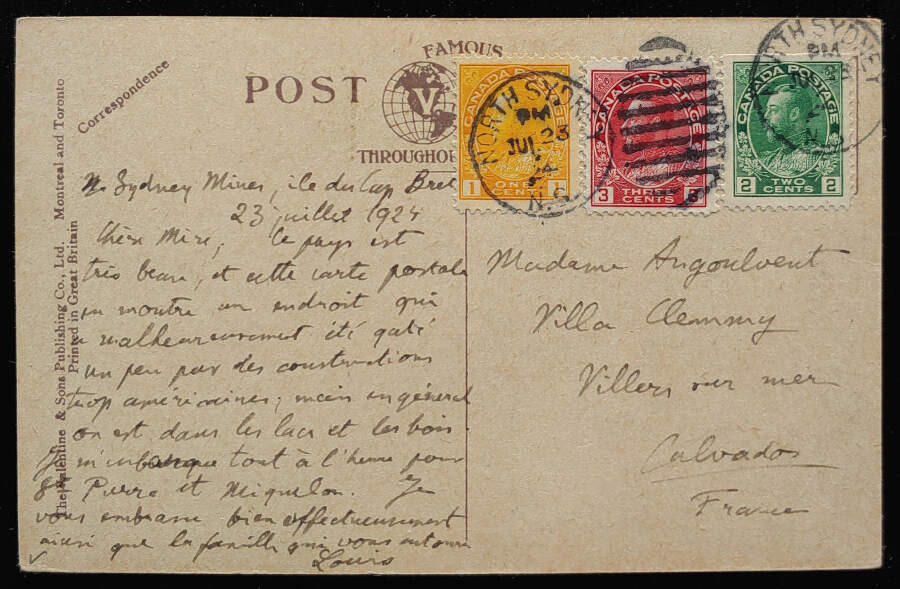 The Valentine & Sons Publishing Co., Ltd. Montreal and Toronto
Printed in Great Britain
Correspondence
POST
FAMOUS
V
THROUGHOU
CANADA POSTAGE
1 ONE CENT 1
NORTH SYDNEY
PM
JUL 23
N.S.
CANADA POSTAGE
3 THREE CENTS 3
CANADA POSTAGE
2 TWO CENTS 2
NORTH SYDNEY
PM
N. Sydney Mines, ile du Cap Bret
23 juillet 1924
Chère Mère, Ce pays est
très beau, et cette carte postale
en montre un endroit qui
a malheureusement été gâté
un peu par des constructions
trop américaines; mais en général
on est dans les lacs et les bois.
Je m'embarque tout à l'heure pour
St Pierre et Miquelon. Je
vous embrasse bien affectueusement
ainsi que la famille qui vous entoure
Louis
Madame Angoulvent
Villa Clemmy
Villers sur mer
Calvados
France